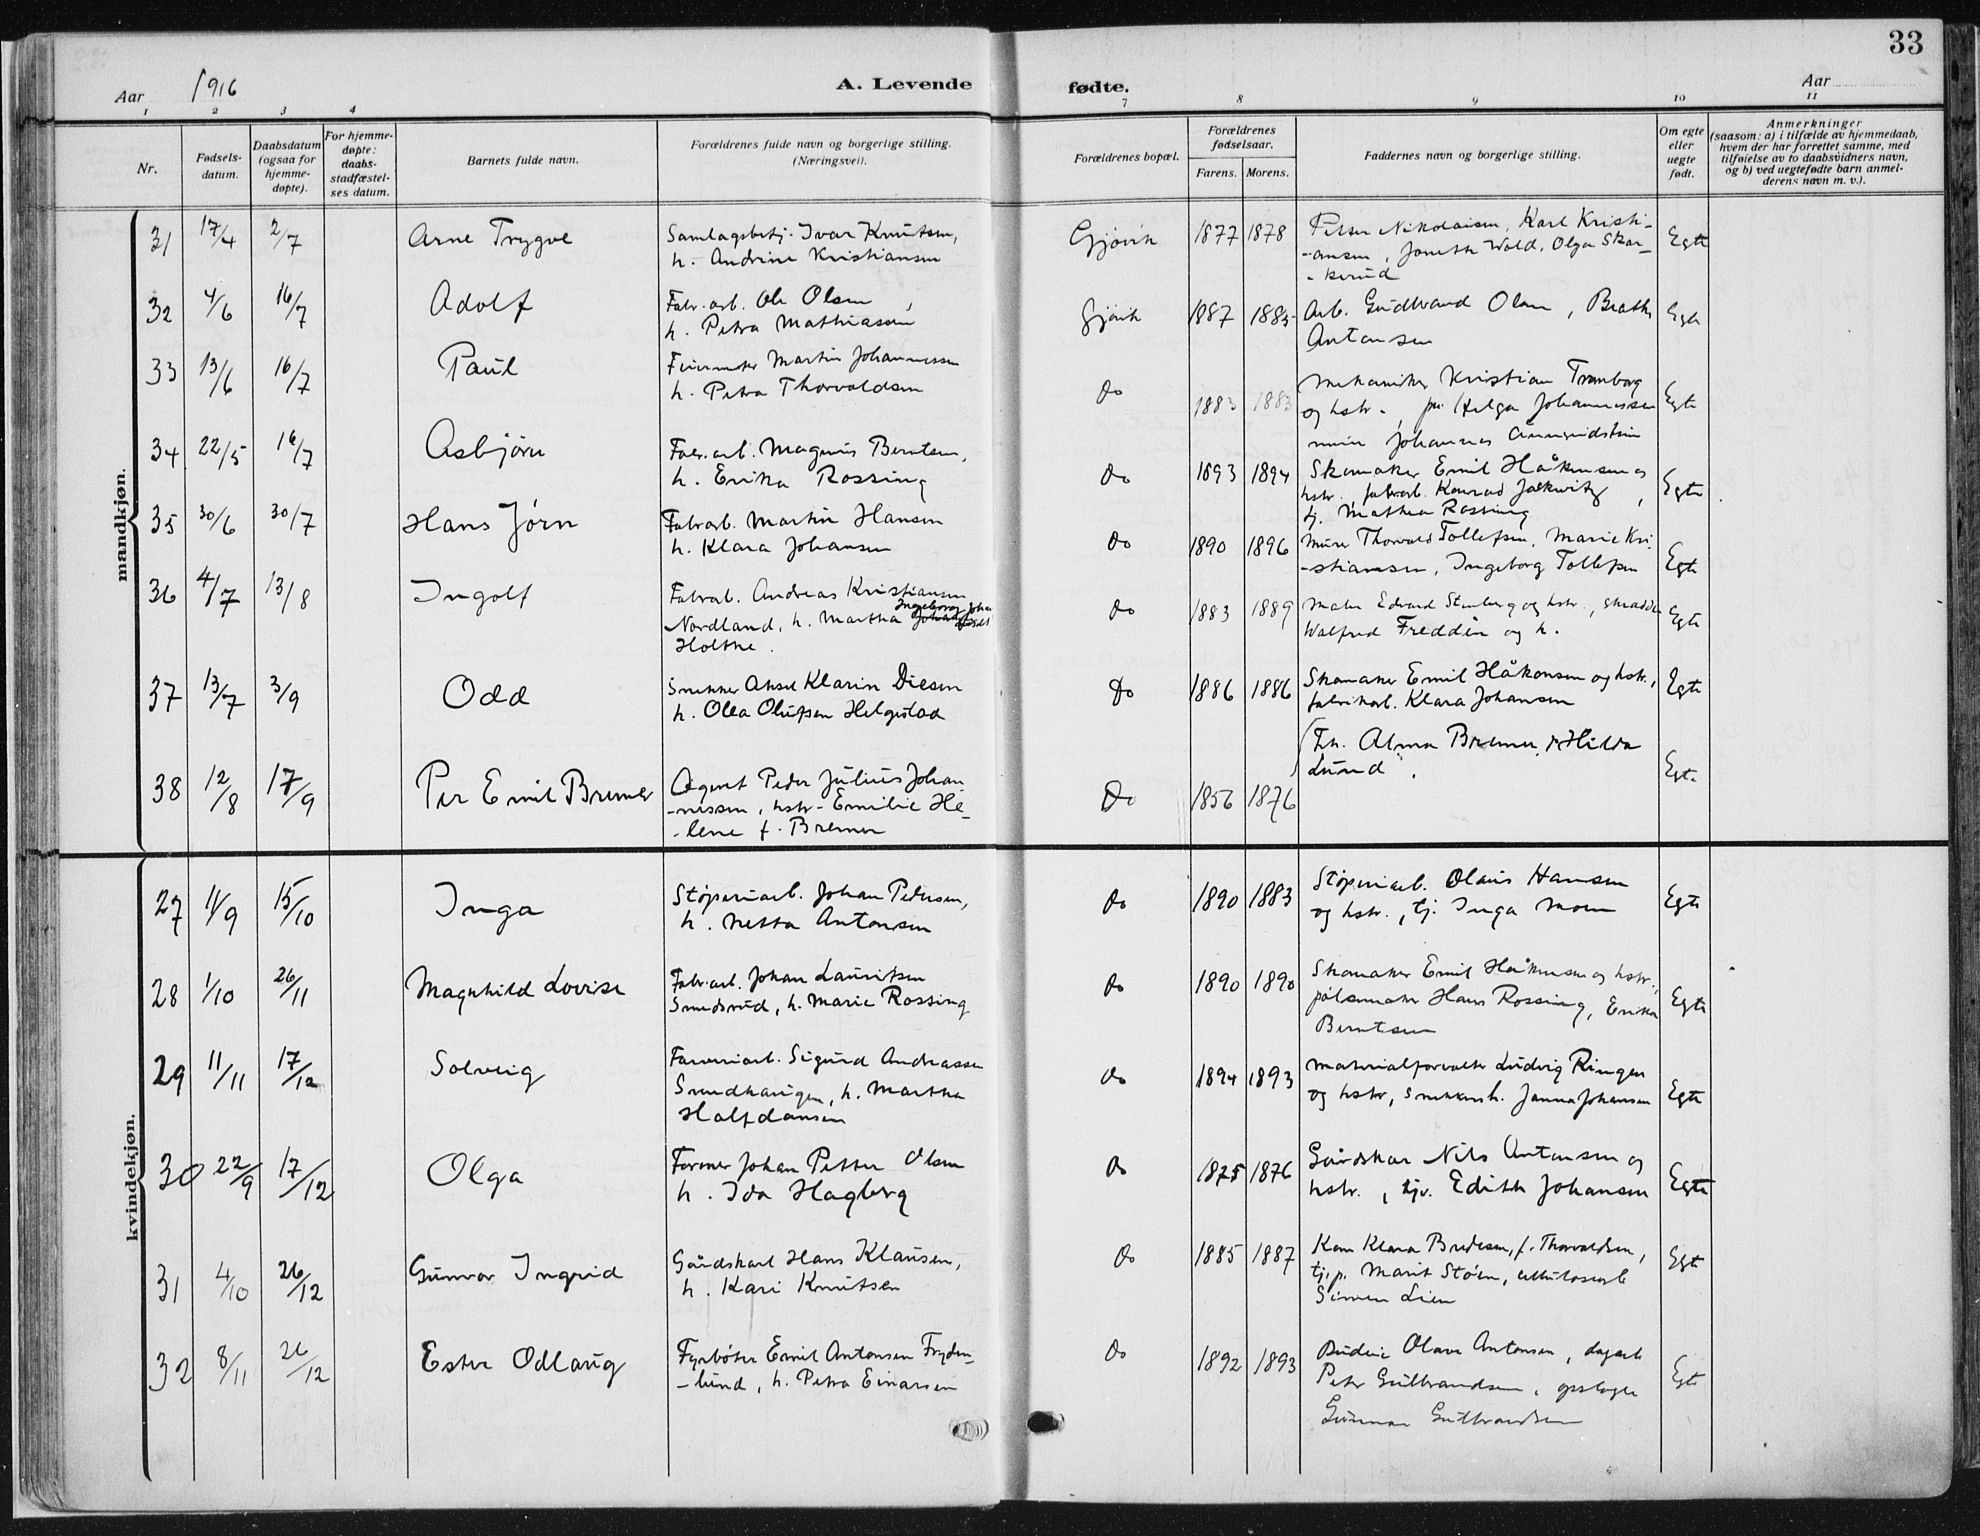 33
Aar 1916
A. Levende fødte.
Aar
1 2 3 4 7 8 9 10 11
Nr.
Fødsels-
datum.
Daabsdatum
(ogsaa for
hjemme-
døpte).
For hjemme-
døpte:
daabs-
stadfæstel-
ses datum.
Barnets fulde navn.
Forældrenes fulde navn og borgerlige stilling.
(Næringsvei).
Forældrenes bopæl.
Forældrenes
fødselsaar.
Farens. Morens.
Faddernes navn og borgerlige stilling.
Om egte
eller
uegte
født.
Anmerkninger
(saasom: a) i tilfælde av hjemmedaab,
hvem der har forrettet samme, med
tilføielse av to daabsvidners navn,
og b) ved uegtefødte barn anmel-
derens navn m. v.).
mandkjøn.
31 17/4 2/7 Arne Trygve
Samlagsbetj. Ivar Knutsen,
h. Andrine Kristiansen
Gjøvik 1877 1878
Peter Nikolaisen, Karl Kristi-
-ansen, Wold, Olga Skar-
-kerud
Egte
32 4/6 16/7 Adolf
Fabr.arb. Ole Olsen,
h. Petra Mathiassen
Gjøvik 1887 1885
Arb. Gudbrand Olsen, Beathe
Antonsen
Egte
33 13/6 16/7 Paul
Martin Johannessen
h. Petra Thorvaldsen
do 1883 1883
Mekaniker Kristian Tranberg
og hstr., Helga Johannessen
Johannes
Egte
34 22/5 16/7 Asbjørn
Fabr.arb. Magnus Berntsen,
h. Erika Rossing
do 1893 1894
Skomaker Emil Håkonsen og
hstr., fabrarb. Konrad
tj. Mathea Rossing
Egte
35 30/6 30/7 Hans Jørn
Fabrarb. Martin Hansen
h. Klara Johansen
do 1890 1896
Murer Thorvald Tollefsen, Marie Kri-
-stiansen, Ingeborg Tollefsen
Egte
36 4/7 13/8 Ingolf
Fabrarb. Andreas Kristiansen
Ingeborg
Nordland, h. Martha
Holthe.
do 1883 1889
Maler Edvard Stenberg og hstr., skrædder
Walfred Freddin og h.
Egte
37 13/7 3/9 Odd
Snekker Aksel Klarin Diesen
h. Olea Olufsen Helgestad
Do 1886 1886
Skomaker Emil Håkonsen og hstr.,
fabrikarb. Klara Johansen
Egte
38 12/8 17/9 Per Emil Bremer
Agent Peder Julius Johan-
-nessen, hstr. Emilie He-
-lene f. Bremer
Do 1856 1876
Frk. Alma Bremer, Hilda
Lund.
Egte
kvindekjøn.
27 11/9 15/10 Inga
Støperiarb. Johan Pedersen,
h. Netta Antonsen
do 1890 1883
Støperiarb. Olaus Hansen
og hstr., tj. Inga Moen
Egte
28 1/10 26/11 Magnhild Lovise
Fabr.arb. Johan Lauritsen
Smedsrud, h. Marie Rossing
do 1890 1890
Skomaker Emil Håkonsen og hstr.,
pølsemaker Hans Rossing, Erika
Berntsen
Egte
29 11/11 17/12 Solveig
Farveriarb. Sigurd Andreassen
Smedhaugen, h. Martha
Halfdansen
do 1894 1893
Materialforvalter Ludvig Ringen
og hstr, Johansen
Egte
30 22/9 17/12 Olga
Former Johan Petter Olsen
h. Ida Hagberg
do 1875 1876
Gårdskar Nils Antonsen og
hstr., tjv. Edith Johansen
Egte
31 4/10 26/12 Gunvor Ingrid
Gårdskarl Hans Klausen,
h. Kari Knutsen
do 1885 1887
Kone Klara Bredesen, f. Thorvaldsen,
tj.p. Marit Støen, cellulosearb
Simen Lien
Egte
32 8/11 26/12 Ester Odlaug
Fyrbøter Emil Antonsen Fryden-
-lund, h. Petra Einarsen
do 1892 1893
Budeie Olave Antonsen, dagarb
Peter Gulbrandsen,
Gunnar Gulbrandsen
Egte